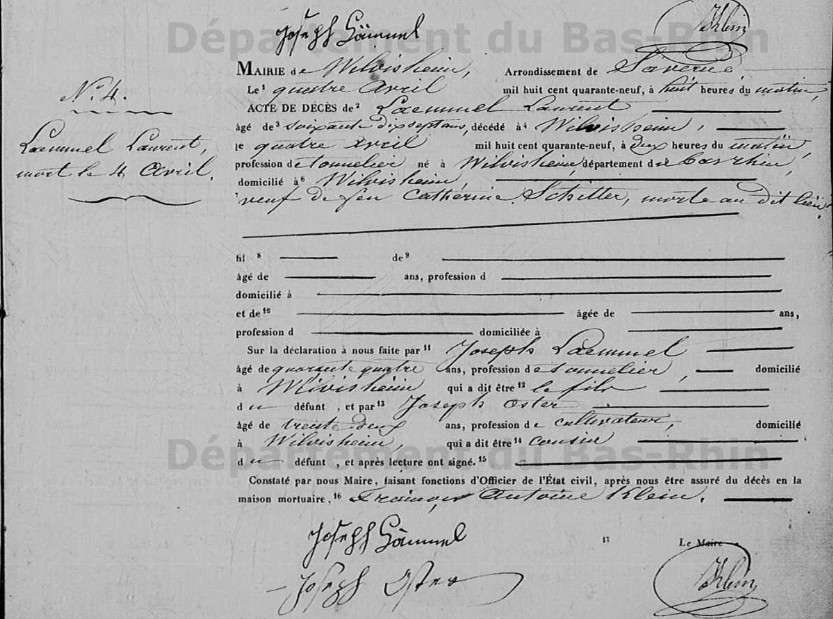 Joseph Lämmel
Klein
Département du Bas-Rhin
MAIRIE de Wilvisheim, Arrondissement de Saverne,
Le¹ quatre Avril mil huit cent quarante-neuf, à huit heures du matin,
N.º 4.
ACTE DE DÉCÈS de² Laemmel Laurent
âgé de³ soixante dix sept ans, décédé à⁴ Wilvisheim,
Laemmel Laurent,
le quatre avril mil huit cent quarante-neuf, à deux heures du matin,
mort le 4 Avril.
profession de tonnelier né à Wilvisheim, département du bas rhin,
domicilié à⁶ Wilvisheim,
veuf de feu Catherine Schitter, morte au dit lieu.
fil⁸ de⁹
âgé de ans, profession d
domicilié à
et de¹⁰ âgée de ans,
profession d domiciliée à
Sur la déclaration à nous faite par¹¹ Joseph Laemmel
âgé de quarante quatre ans, profession de tonnelier, domicilié
à Wilvisheim qui a dit être¹² le fils
du défunt, et par¹³ Joseph Oster
âgé de trente deux ans, profession de cultivateur, domicilié
à Wilvisheim, qui a dit être¹⁴ cousin
du défunt, et après lecture ont signé.¹⁵
Département du Bas-Rhin
Constaté par nous Maire, faisant fonctions d'Officier de l'État civil, après nous être assuré du décès en la
maison mortuaire,¹⁶ François Antoine Klein.
Joseph Lämmel
¹⁷ Le Maire
Joseph Oster
Klein